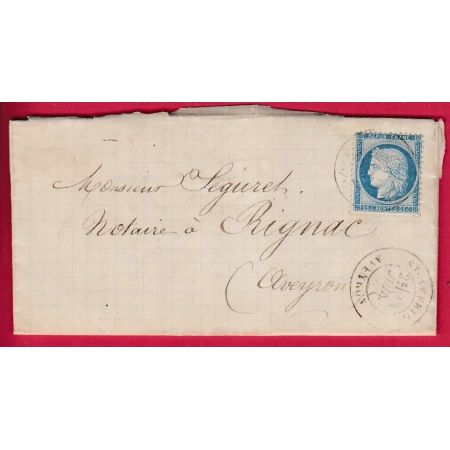 REPUB. FRANC.
25 C. POSTES 25 C.
Monsieur Séguret.
Notaire à Rignac
(Aveyron